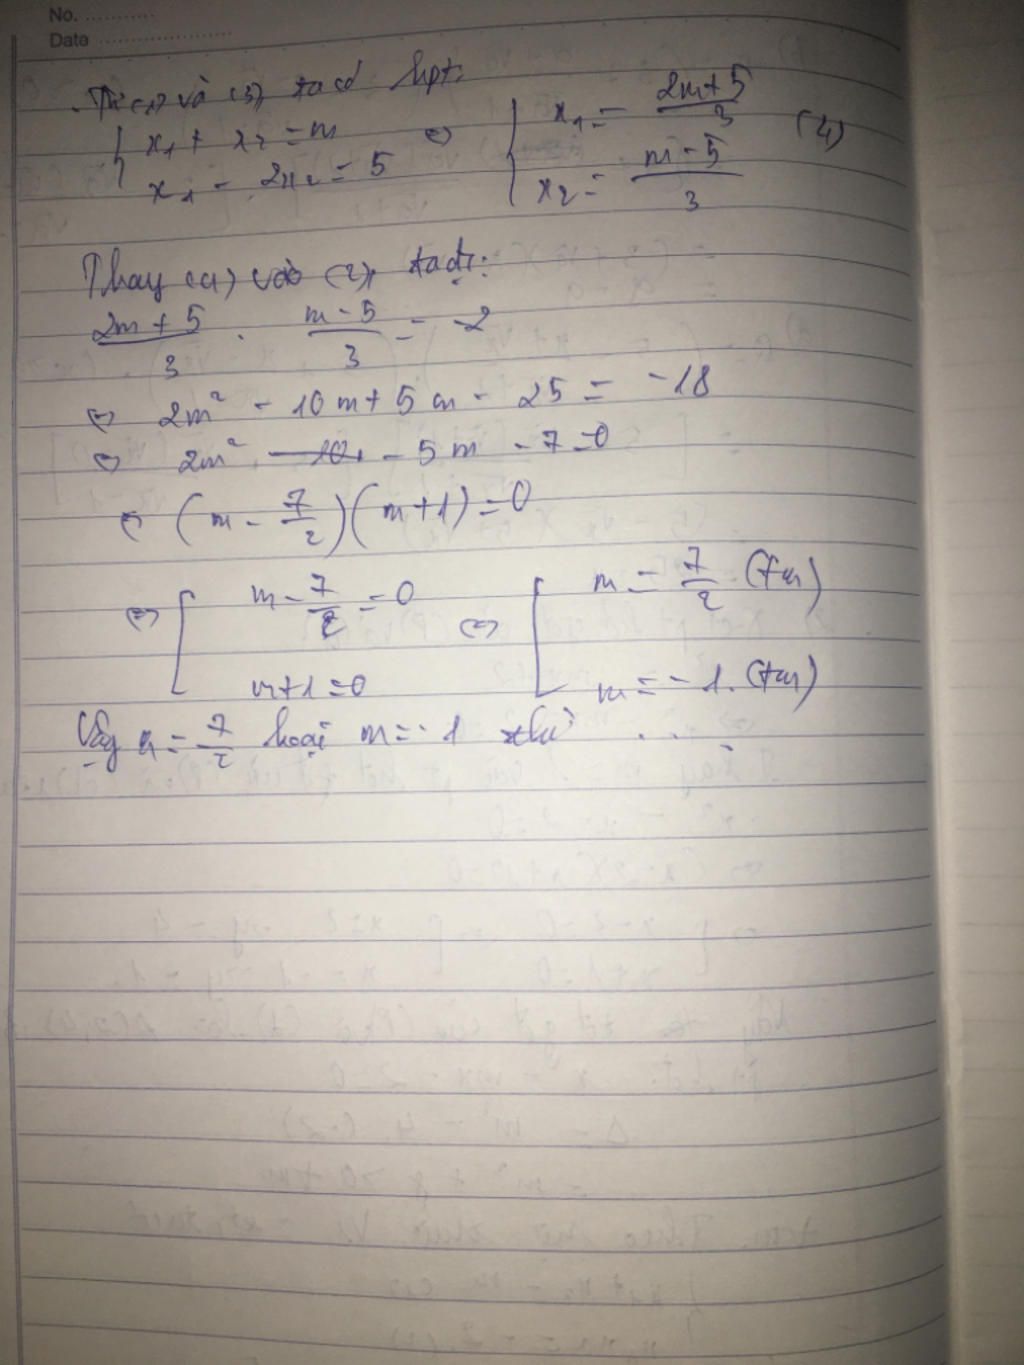 No. ............
Date .......................
Từ (1) và (3), ta có hpt:
{ x₁ + x₂ = m
x₁ - 2x₂ = 5 ⇔ { x₁ = (2m+5)/3
x₂ = (m-5)/3 (4)
Thay (4) vào (2), ta đc:
(2m+5)/3 . (m-5)/3 = -2
⇔ 2m² - 10m + 5m - 25 = -18
⇔ 2m² - 5m - 7 = 0
⇔ (m - 7/2)(m+1) = 0
⇔ [ m - 7/2 = 0
m+1 = 0 ⇔ [ m = 7/2 (tm)
m = -1. (tm)
Vậy m = 7/2 hoặc m = -1 thì ...